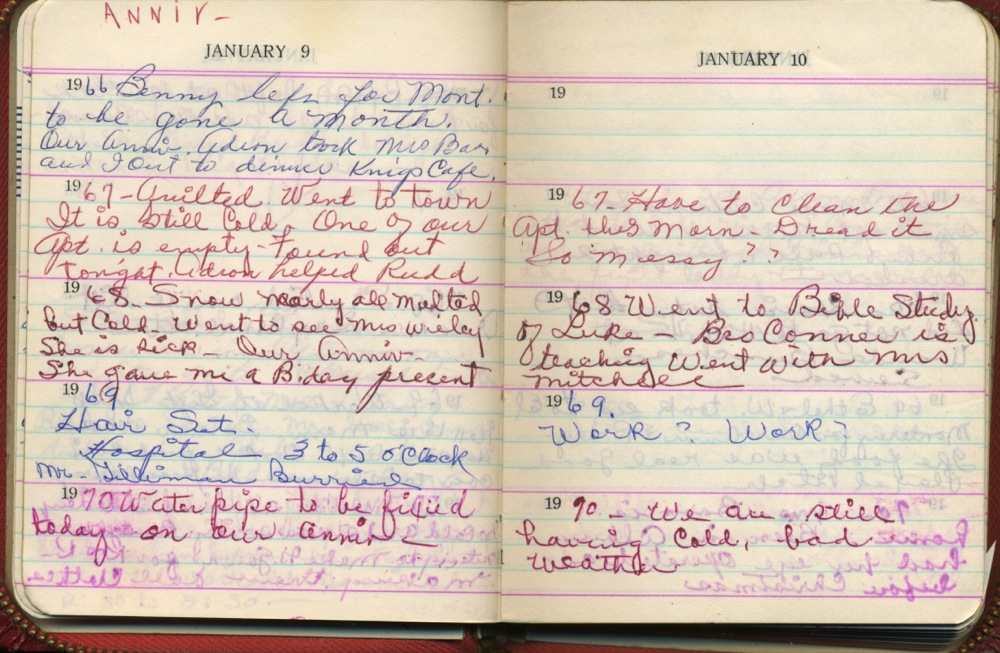 ANNIV-
JANUARY 9
1966 Benny left for Mont.
to be gone a month.
Our Anniv. Adron took Mrs Bar
and I out to dinner Knigs Cafe.
1967-Quilted. Went to town
It is still Cold. One of our
Apt. is empty-Found out
tonight. Adron helped Rudd
1968- Snow nearly all melted
but Cold. Went to see Mrs Wiley
She is sick- Our Anniv-
She gave me a B.day present
1969
Hair Set.
Hospital 3 to 5 o'Clock
Mr. Burried
1970 Water pipe to be fixed
today on our anniv-
JANUARY 10
19
1967- Have to clean the
Apt. this Morn- Dread it
So messy??
1968 Went to Bible Study
of Luke - Bro Conner is
teaching Went with Mrs
Mitchell
1969.
Work? Work?
1970- We are still
having Cold, bad
Weather